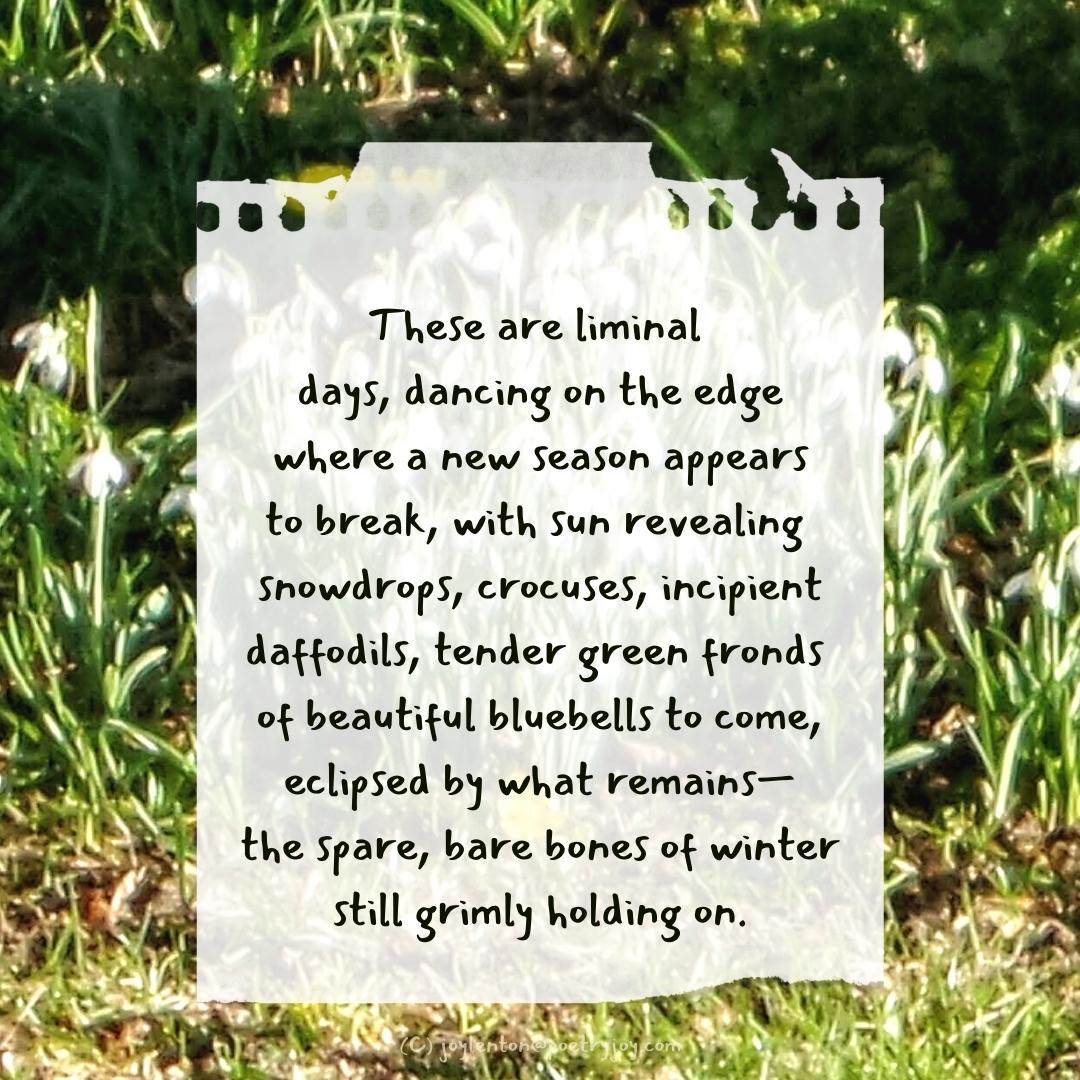 These are liminal
days, dancing on the edge
where a new season appears
to break, with sun revealing
snowdrops, crocuses, incipient
daffodils, tender green fronds
of beautiful bluebells to come,
eclipsed by what remains—
the spare, bare bones of winter
still grimly holding on.
(C) joylenton@poetryjoy.com